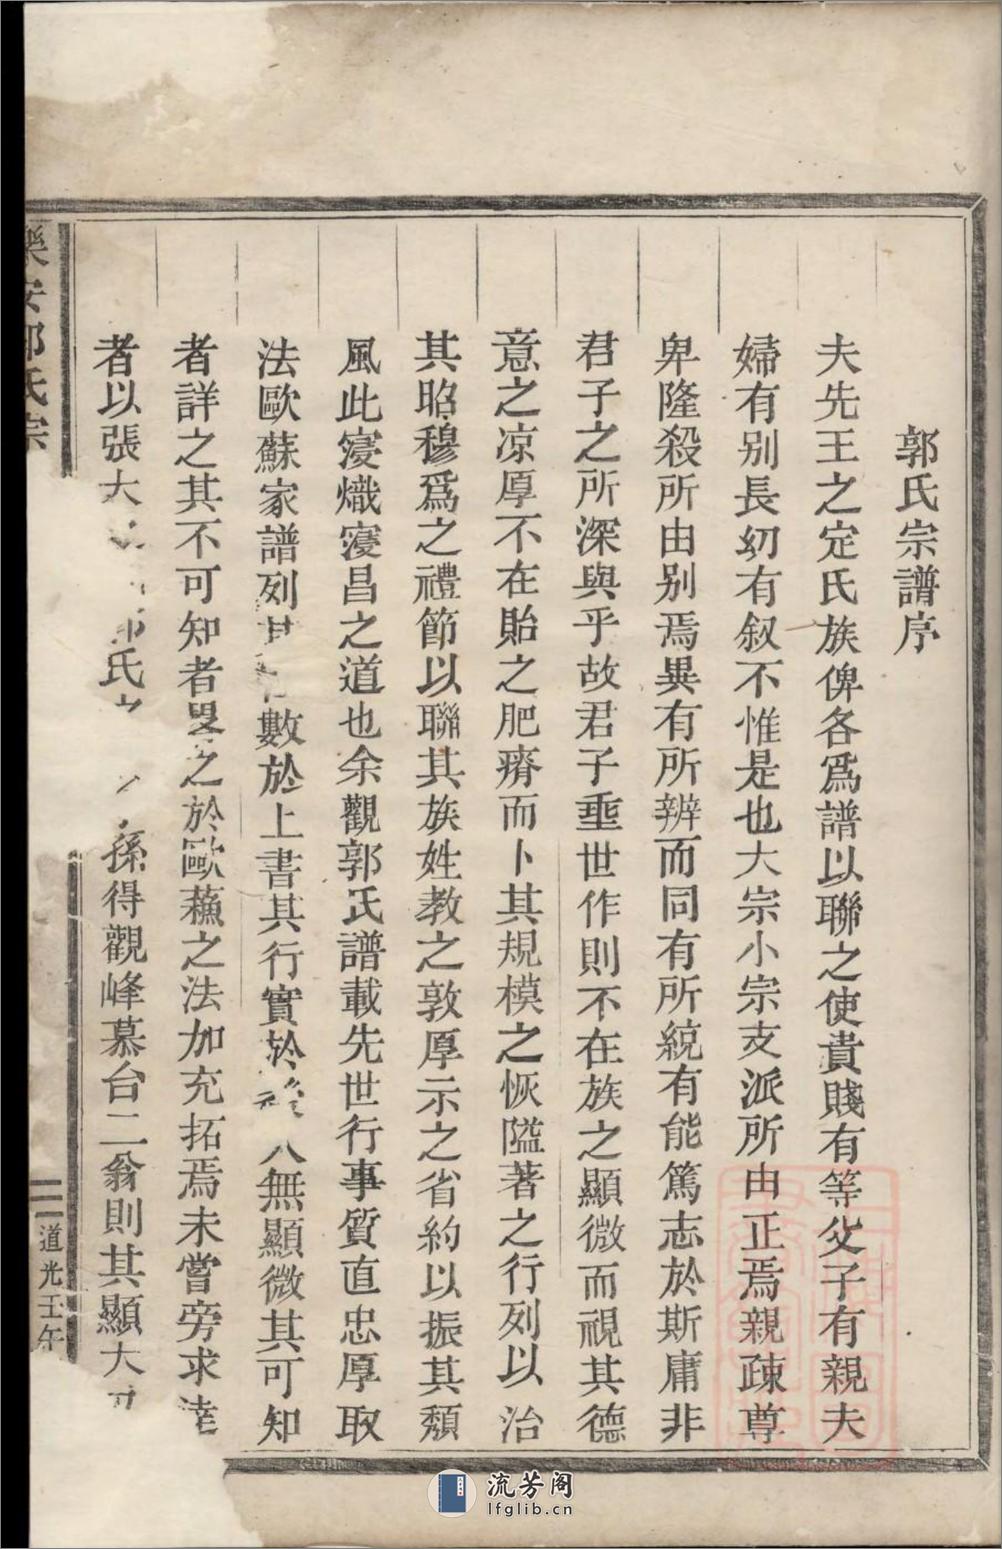 郭氏宗譜序
夫先王之定氏族俾各爲譜以聯之使貴賤有等父子有親夫
婦有别長幼有叙不惟是也大宗小宗支派所由正焉親疎尊
卑隆殺所由别焉異有所辨而同有所統有能篤志於斯庸非
君子之所深與乎故君子垂世作則不在族之顯微而視其德
意之凉厚不在貽之肥瘠而卜其規模之恢隘著之行列以治
其昭穆爲之禮節以聯其族姓教之敦厚示之省約以振其頽
風此寖熾寖昌之道也余觀郭氏譜載先世行事質直忠厚取
法歐蘇家譜列其數於上書其行實於無顯微其可知
者詳之其不可知者畧之於歐蘓之法加充拓焉未嘗旁求逹
者以張大氏孫得觀峰慕台二翁則其顯大
樂安郭氏宗
二
道光壬午
流芳阁
lfglib.cn